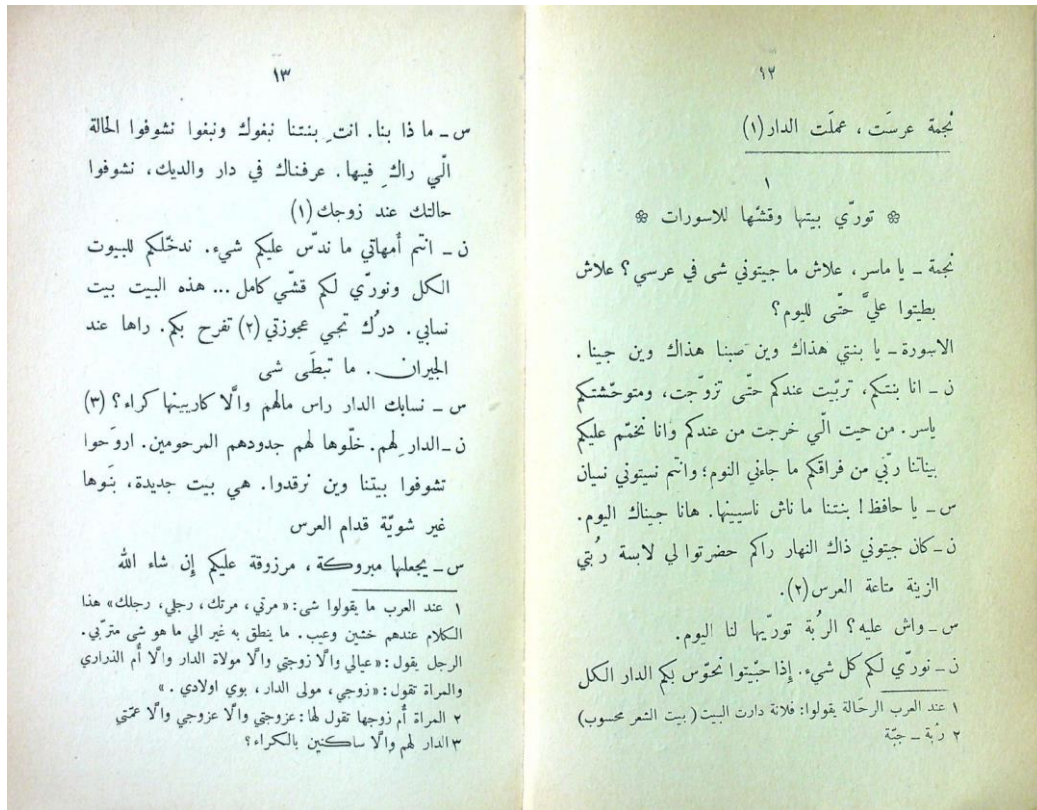 ١٢
نجمة عرسَت ، عملَت الدار (١)
١
❁ تورّي بيتها وقشها للاسورات ❁
نجمة ـ يا ماسر ، علاش ما جيتوني شى في عرسي ؟ علاش
بطيتوا عليَّ حتّى لليوم ؟
الاسورة ـ يا بنتي هذاك وين صبنا هذاك وين جينا .
ن ـ انا بنتكم، تربّيت عندكم حتّى تزوّجت، ومتوحّشتكم
ياسر . من حيت الّي خرجت من عندكم وَانا نخمّم عليكم
بياتنا ربّي من فراقكم ما جاني النوم؛ وانتم نسيتوني نسيان
س ـ يا حافظ ! بنتنا ماناش ناسيينها. هانا جيناك اليوم.
ن ـ كان جيتوني ذاك النهار راكم حضرتوا لي لابسة رُبتي
الزينة متاعة العرس (٢).
س ـ واش عليه ؟ الرُبة تورّيها لنا اليوم.
ن ـ نورّي لكم كل شيء. إذا حبّيتوا نحوّس بكم الدار الكل
١ عند العرب الرحَالة يقولوا: فلانة دارت البيت ( بيت الشعر محسوب )
٢ رُبة ـ جبّة
١٣
س ـ ما ذا بنا. انتِ بنتنا نبغوك ونبغوا نشوفوا الحالة
الّي راكِ فيها. عرفناك في دار والديك، نشوفوا
حالتك عند زوجك (١)
ن ـ انتم أمهاتي ما ندسّ عليكم شيء. ندخّلكم للبيوت
الكل ونورّي لكم قشّي كامل ... هذه البيت بيت
نسابي. درُك تجي عجوزتي (٢) تفرح بكم. راها عند
الجيران. ما تبطَى شى
س ـ نسابك الدار راس مالهم والّا كاريينها كراء ؟ (٣)
ن ـ الدار لهم. خلّوها لهم جدودهم المرحومين. اروَحوا
تشوفوا بيتنا وين نرقدوا. هي بيت جديدة، بنَوها
غير شويّة قدام العرس
س ـ يجعلها مبروكة ، مرزوقة عليكم إن شاء الله
١ عند العرب ما يقولوا شى : « مرتي ، مرتك ، رجلي ، رجلك » هذا
الكلام عندهم خشين وعيب . ما ينطق به غير الي ما هو شى متربّي.
الرجل يقول : « عيالي والّا زوجتي والّا مولاة الدار والّا أم الذراري
والمراة تقول : « زوجي ، مولى الدار ، بوي اولادي . »
٢ المراة أم زوجها تقول لها : عزوجتي والّا عزوجي والّا عمّتي
٣ الدار لهم والّا ساكنين بالكراء ؟